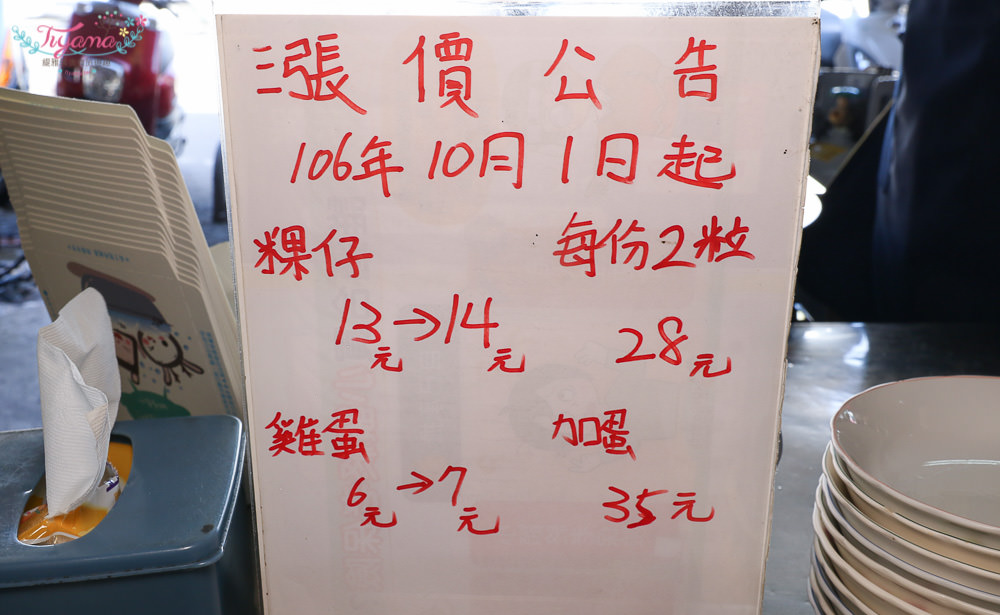 Tiyama
漲價公告
106年10月1日起
粿仔 每份2粒
13元→14元 28元
雞蛋 加蛋
6元→7元 35元